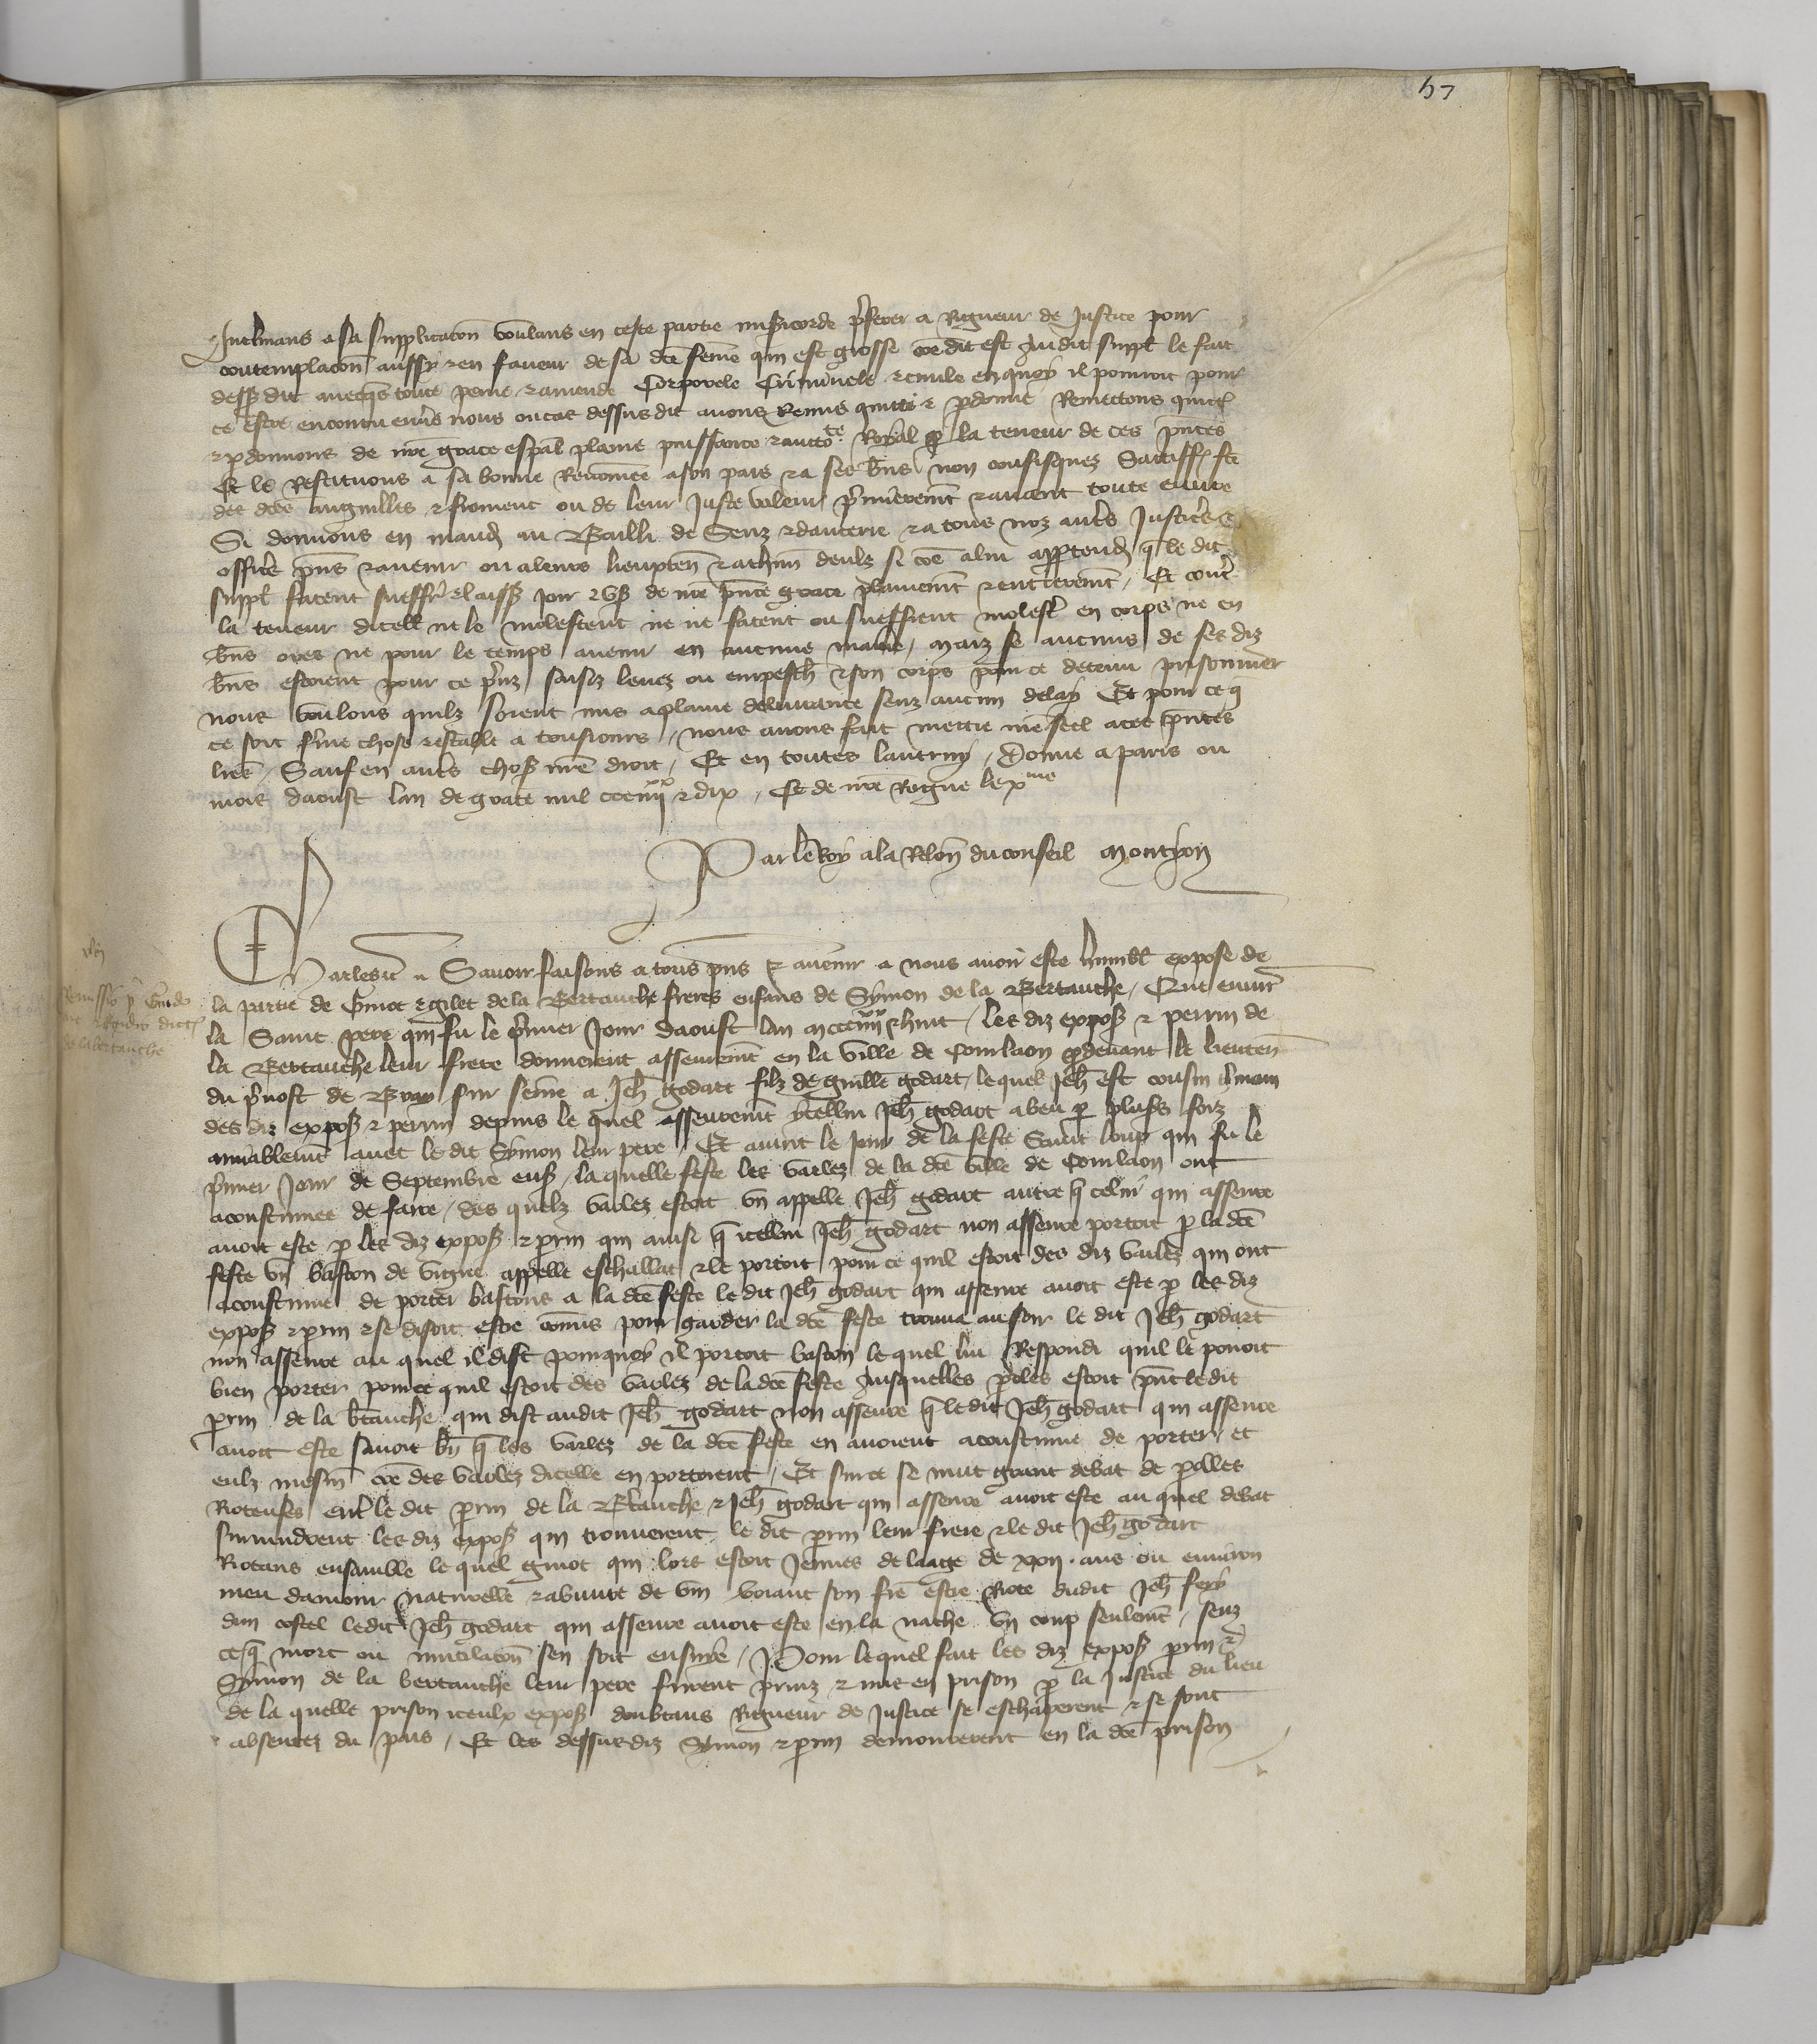 57
Inclinans a sa supplicacōn voulans en ceste partie miſicorde p̄ferer a Rigueur de Justice pour
contemplacōn aussy ⁊ en faveur de sa dc̄e fem̄e qui est grosse cōe dit est Audit suppl̄ le fait
dess⁹ dit avecq̄s toute peine ⁊ amende Corporele Criminele ⁊ civile en quoy il pourroit pour
ce estre encouru env̄s nous ou cas dessus dit avons Remis quitté ⁊ p̄donné Remettons quitt̄
⁊ p̄donnons de nr̄e grace esp̄al plaine puissance ⁊ auctoᵗᵉ Royal p̄ la teneur de ces p̄ntes
Et le Restituons a sa bonne Renom̄ee a son pais ⁊ a ses bn̄s non confisquez Satisff̄ fc̄e
des dc̄es anguilles ⁊ froment ou de leur juste valeur p̄mierem̄t ⁊ avant toute euvre
Si donnons en mand̄ au Bailli de Senz ⁊ daucerre ⁊ a tous noz aut̄s Justicˢ ⁊
officˢ p̄ns ⁊ avenir ou a leurs lieuxten̄ ⁊ a chūn deulz si cōe a lui app̄tendr̄ q̄ le dit
suppl̄ facent sueffr̄ ⁊ laiss̄ joir ⁊ us̄ de nr̄e p̄nte grace plainem̄t ⁊ entierem̄t / Et cont̄
la teneur dicell̄ ne le molestent ne ne facent ou sueffrent molest̄ en corps ne en
bn̄s ores ne pour le temps avenir en aucune manie / Maiz se aucuns de ses diz
bn̄s estoient pour ce p̄nz saisiz levez ou empesch̄ ⁊ son corps pour ce detenu prisonnier
nous voulons quilz soient mis a plaine delivrance senz aucun delay Et pour ce q̄
ce soit ferme chose ⁊ estable a tousiours / nous avons fait mettre nr̄e seel a ces p̄ntes
lres̄ / Sauf en aut̄s chos̄ nr̄e droit / Et en toutes lautruy / Donne a paris ou
mois daoust lan de grace mil ccc iiijˣˣ ⁊ dix / Et de nr̄e Regne le xᵐᵉ
Par le Roy a la Relōn du conseil Montyon
Charles ⁊c̄ Savoir faisons a tous p̄ns ⁊ avenir a nous avoir este humbl̄ expose de
la partie de Guiot ⁊ Gilet de la Bertauche freres enfans de Symon de la Bertauche / Que envir̄
la Saint Pere qui fu le p̄mier Jour daoust lan m ccc iiijˣˣ ⁊ huit / les diz expos̄ ⁊ perrin de
la Bertauche leur frere donnerent asseurem̄t en la ville de Courlaon p̄devant le lieuten̄
du p̄vost de Bray sur Seine a Jeh̄ godart filz de guille godart / lequel Jeh̄ est cousin ḡmain
des diz expos̄ ⁊ perrin depuis le quel asseurem̄t ycellui Jeh̄ godart a beu p̄ plus̄s foiz
amiablem̄t avec le dit Symon leur pere / Et avint le jour de la feste Saint loup qui fu le
p̄mier Jour de Septembre ens̄ / la quelle feste les varlez de la dc̄e ville de Courlaon ont
acoustumee de faire / des quelz varlez estoit un appelle Jeh̄ godart autre q̄ celui qui asseure
avoit este p̄ les diz expos̄ ⁊ p̄rin qui ainsi q̄ icellui Jeh̄ godart non asseure portoit p̄ la dc̄e
feste un baston de vigne appelle eschallat ⁊ le portoit pour ce quil estoit des diz varlez qui ont
acoustume de porter bastons a la dc̄e feste le dit Jeh̄ godart qui asseure avoit este p̄ les diz
expos̄ ⁊ p̄rin ⁊ se disoit estre com̄is pour garder la dc̄e feste trouva au soir le dit Jeh̄ godart
non asseure au quel il dist pourquoy il portoit baston le quel lui Respondi quil le povoit
bien porter pour ce quil estoit des varlez de la dc̄e feste Ausquelles p̄oles estoit p̄nt le dit
p̄rin de la B̄tauche qui dist audit Jeh̄ godart non asseure q̄ le dit Jeh̄ godart qui asseure
avoit este savoit bn̄ q̄ les varlez de la dc̄e feste en avoient acoustume de porter et
eulz mesm̄ cōe des varlez dicelle en portoient / Et sur ce se mut grant debat de p̄olles
Roteuses ent̄ le dit p̄rin de la B̄tauche ⁊ Jeh̄ godart qui asseure avoit este au quel debat
survindrent les diz expos̄ qui trouverent le dit p̄rin leur frere ⁊ le dit Jeh̄ godart
Riotans ensamble le quel guiot qui lors estoit Jeunes de laage de xxij ans ou environ
meu damour naturelle ⁊ abuvre de vin voiant son frē estre Riote dudit Jeh̄ fery
dun costel ledit Jeh̄ godart qui asseure avoit este en la nache un coup seulem̄t / senz
ce q̄ mort ou mutilacōn sen soit ensuye / Pour lequel fait les diz expos̄ p̄rin ⁊
Symon de la bertauche leur pere furent prinz ⁊ mis en prison p̄ la Justice du lieu
de la quelle prison iceulx expos̄ doubtans Rigueur de Justice se eschaperent ⁊ se sont
absentez du pais / Et les dessusdiz Symon ⁊ p̄rin demourerent en la dc̄e prison
Remissio p̄ Guido
⁊ Egidio dictis
de la bertauche